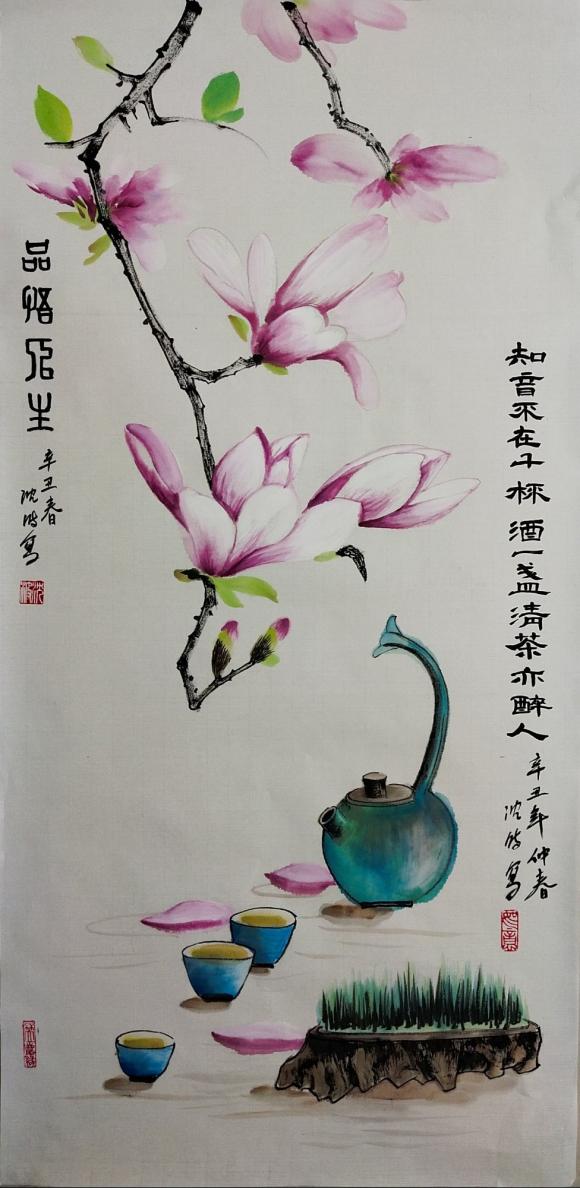 知音不在千杯酒一盏清茶亦醉人
辛丑年仲春
沈波写
如意
品悟人生
辛丑春
沈波写
沈波